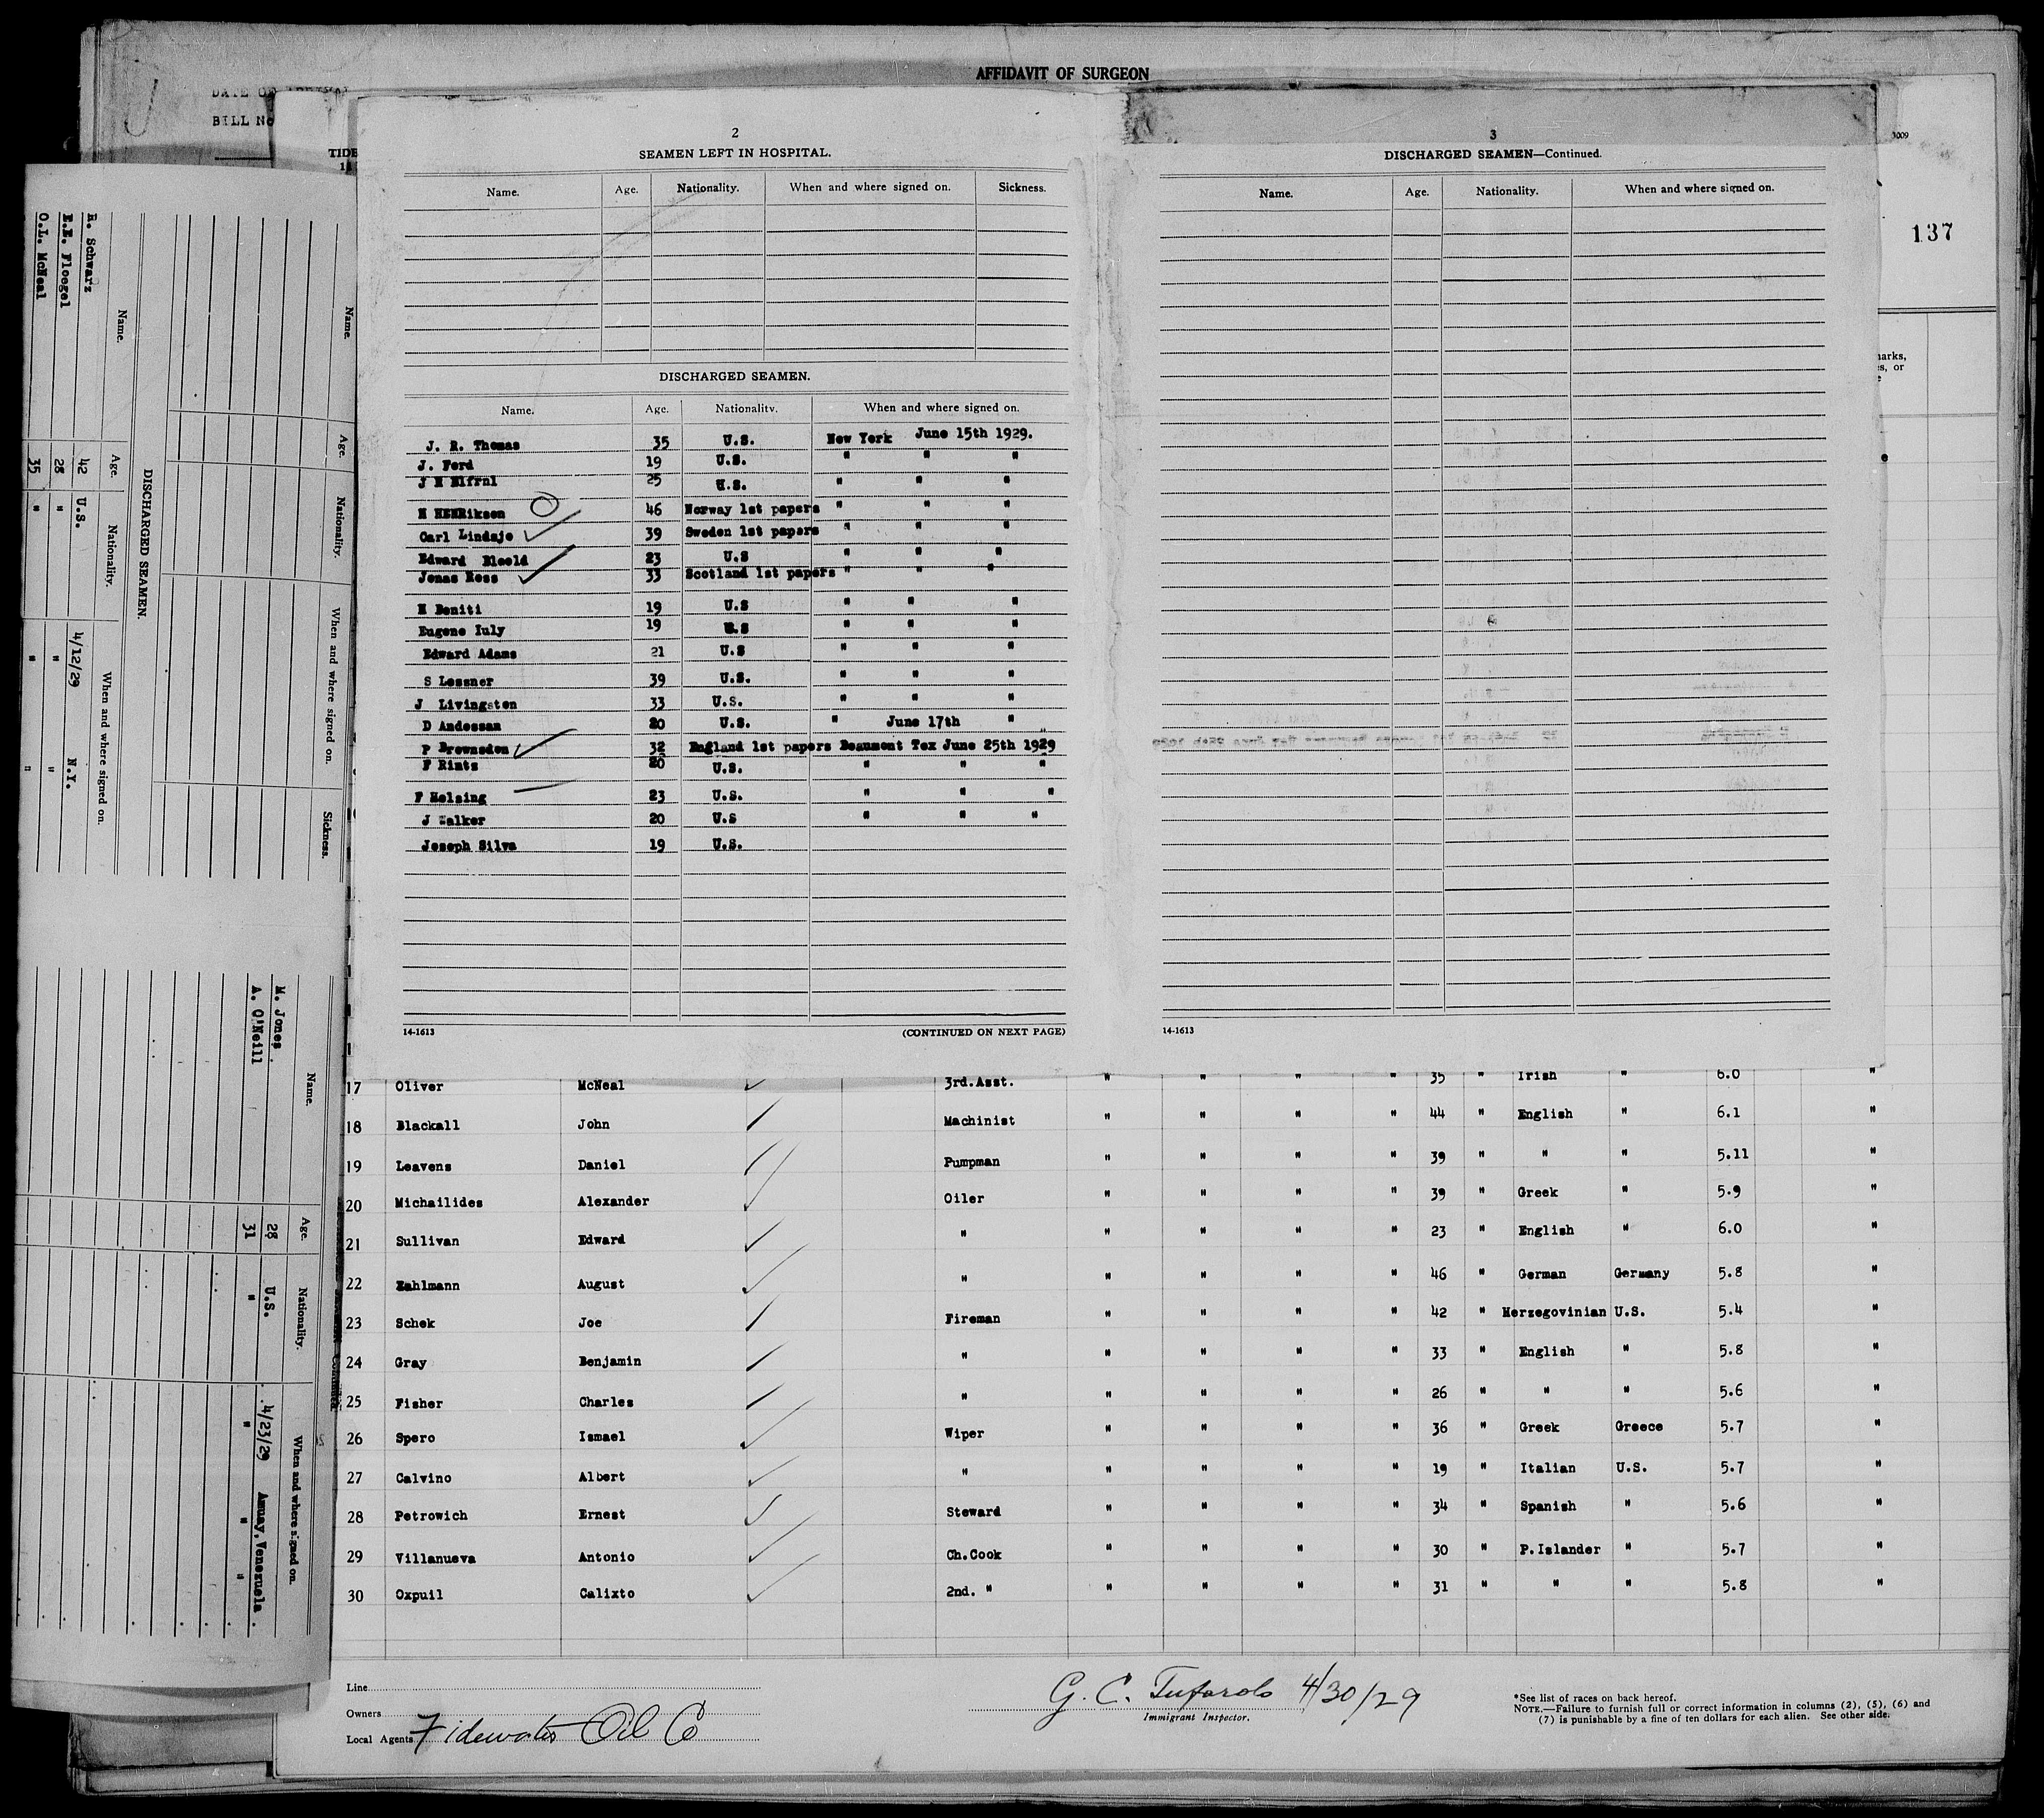 AFFIDAVIT OF SURGEON
BILL No
TIDE
3009
137
2
SEAMEN LEFT IN HOSPITAL.
Name. Age. Nationality. When and where signed on. Sickness.
DISCHARGED SEAMEN.
Name. Age. Nationality. When and where signed on.
J. R. Thomas 35 U.S. New York June 15th 1929.
J. Ford 19 U.S. " " "
25 U.S. " " "
H HENRiksen 46 Norway 1st papers " " "
Carl Lindsje 39 Sweden 1st papers " " "
Edward 23 U.S " " "
Jonas Ross 33 Scotland 1st papers " " "
H Beniti 19 U.S " " "
Eugene Iuly 19 U.S " " "
Edward Adams 21 U.S " " "
S Lessner 39 U.S. " " "
J Livingston 33 U.S. " " "
D Andessan 20 U.S. " June 17th "
P Brownsdon 32 England 1st papers Beaumont Tex June 25th 1929
F Rints 20 U.S. " " "
F Helsing 23 U.S. " " "
J Walker 20 U.S " " "
Joseph Silva 19 U.S.
14-1613 (CONTINUED ON NEXT PAGE)
3
DISCHARGED SEAMEN—Continued.
Name. Age. Nationality. When and where signed on.
14-1613
Name. Age. Nationality. When and where signed on. Sickness.
DISCHARGED SEAMEN.
Name. Age. Nationality. When and where signed on.
R. Schwarz 42 U.S. 4/12/29 N.Y.
E.E. Floegel 28 " " "
O.L. McNeal 35 " " "
Name. Age. Nationality. When and where signed on.
M. Jones 28 U.S. 4/23/29 Amuay, Venezuela
A. O'Neill 31 " " " "
17 Oliver McNeal 3rd.Asst. " " " " 35 " Irish " 6.0 "
18 Blackall John Machinist " " " " 44 " English " 6.1 "
19 Leavens Daniel Pumpman " " " " 39 " " " 5.11 "
20 Michailides Alexander Oiler " " " " 39 " Greek " 5.9 "
21 Sullivan Edward " " " " " 23 " English " 6.0 "
22 Zahlmann August " " " " " 46 " German Germany 5.8 "
23 Schek Joe Fireman " " " " 42 " Herzegovinian U.S. 5.4 "
24 Gray Benjamin " " " " " 33 " English " 5.8 "
25 Fisher Charles " " " " " 26 " " " 5.6 "
26 Spero Ismael Wiper " " " " 36 " Greek Greece 5.7 "
27 Calvino Albert " " " " " 19 " Italian U.S. 5.7 "
28 Petrowich Ernest Steward " " " " 34 " Spanish " 5.6 "
29 Villanueva Antonio Ch.Cook " " " " 30 " P.Islander " 5.7 "
30 Oxpuil Calixto 2nd. " " " " " 31 " " " 5.8 "
Line
Owners
Local Agents Tidewater Oil Co
G. C. Tufarolo 4/30/29
Immigrant Inspector.
*See list of races on back hereof.
NOTE.—Failure to furnish full or correct information in columns (2), (5), (6) and
(7) is punishable by a fine of ten dollars for each alien. See other side.